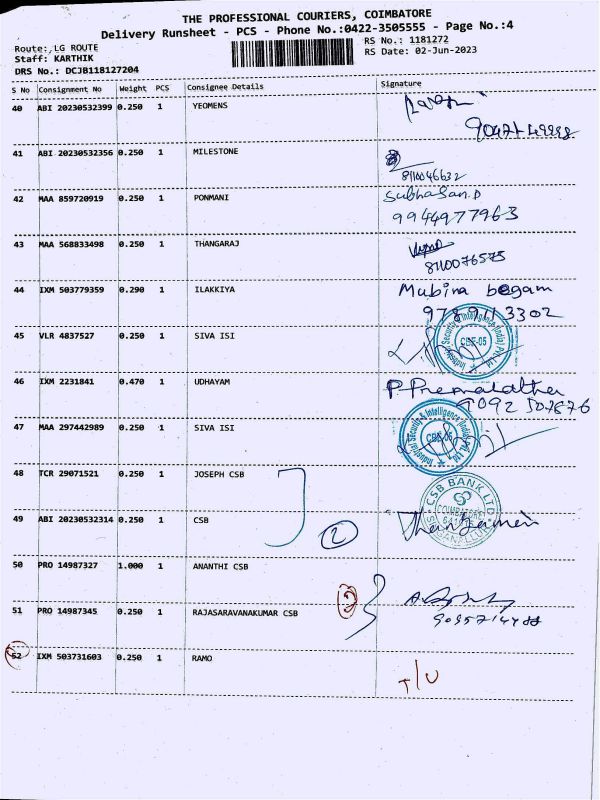 THE PROFESSIONAL COURIERS, COIMBATORE
Delivery Runsheet - PCS - Phone No.:0422-3505555 - Page No.:4
Route:,LG ROUTE
RS No.: 1181272
Staff: KARTHIK
RS Date: 02-Jun-2023
DRS No.: DCJB118127204
S No Consignment No Weight PCS Consignee Details Signature
40 ABI 20230532399 0.250 1 YEOMENS
41 ABI 20230532356 0.250 1 MILESTONE
8110046632
42 MAA 859720919 0.250 1 PONMANI Subhasan.D
9944977963
43 MAA 568833498 0.250 1 THANGARAJ
8110076575
44 IXM 503779359 0.290 1 ILAKKIYA Mubina begam
9789113302
45 VLR 4837527 0.250 1 SIVA ISI
Industrial Security & Intelligence (India) Pvt. Ltd.
CBE-05
46 IXM 2231841 0.470 1 UDHAYAM P. Premalatha
9092507876
47 MAA 297442989 0.250 1 SIVA ISI
Industrial Security & Intelligence (India) Pvt. Ltd.
CBE-05
48 TCR 29071521 0.250 1 JOSEPH CSB
CSB BANK LTD
COIMBATORE
49 ABI 20230532314 0.250 1 CSB
2
50 PRO 14987327 1.000 1 ANANTHI CSB
2
51 PRO 14987345 0.250 1 RAJASARAVANAKUMAR CSB
52 IXM 503731603 0.250 1 RAMO
T/U